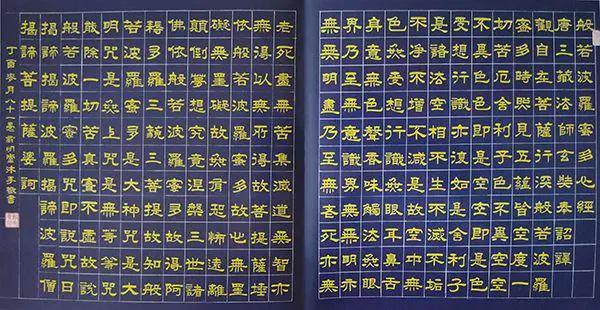 般若波羅蜜多心經
唐三藏法師玄奘奉詔譯
觀自在菩薩行深般若波羅
蜜多時照見五蘊皆空度一
切苦厄舍利子色不異空空
不異色色即是空空即是色
受想行識亦復如是舍利子
是諸法空相不生不滅不垢
不淨不增不減是故空中無
色無受想行識無眼耳鼻舌
身意無色聲香味觸法無眼
界乃至無意識界無無明亦
無無明盡乃至無老死亦無
老死盡無苦集滅道無智亦
無得以無所得故菩提薩埵
依般若波羅蜜多故心無罣
礙無罣礙故無有恐怖遠離
顛倒夢想究竟涅槃三世諸
佛依般若波羅蜜多故得阿
耨多羅三藐三菩提故知般
若波羅蜜多是大神咒是大
明咒是無上咒是無等等咒
能除一切苦真實不虛故說
般若波羅蜜多咒即說咒曰
揭諦揭諦波羅揭諦波羅僧
揭諦菩提薩婆訶
丁酉月八十一沐手敬書